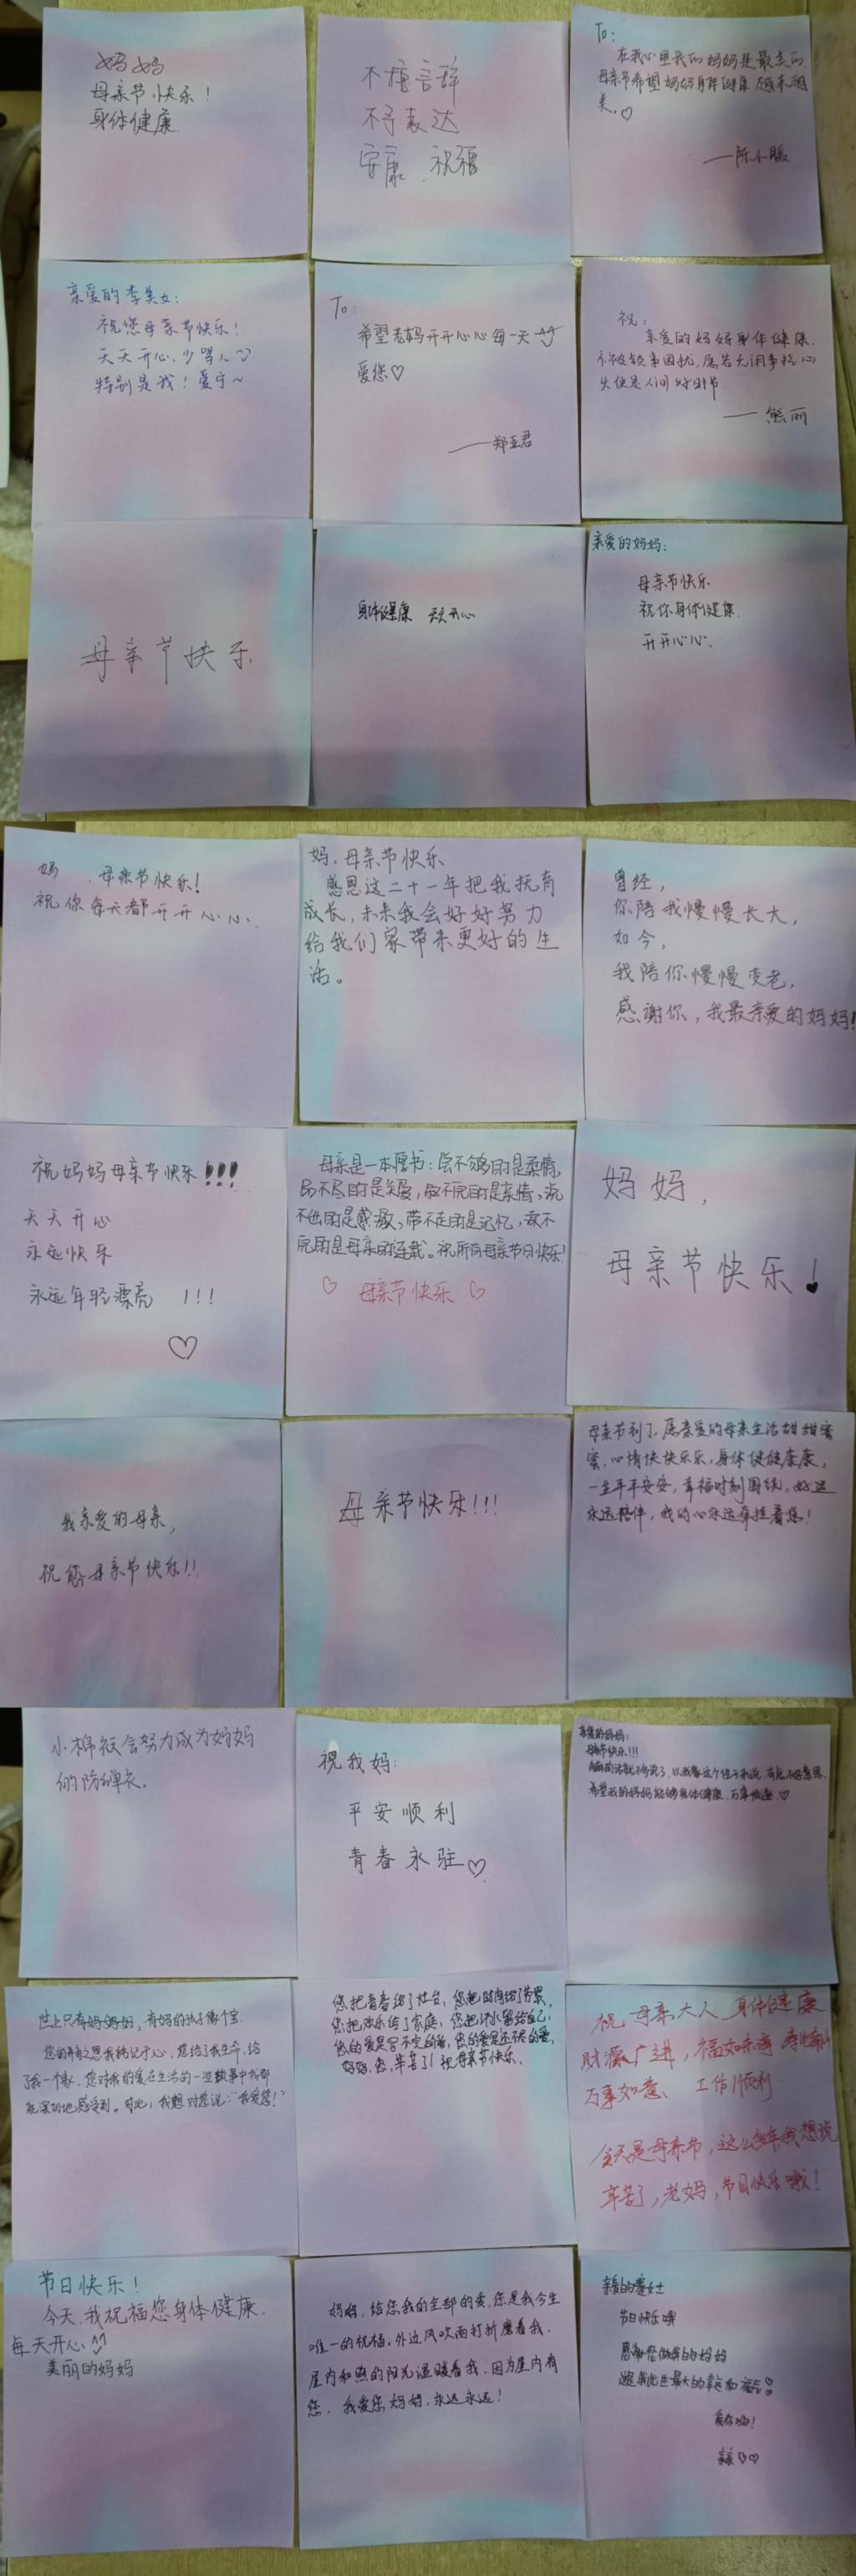 妈妈
母亲节快乐!
身体健康
不擅言辞
不予表达
安康 祝福
To:
在我心里我的妈妈是最美的
母亲节希望妈妈身体健康 越来越
美。♡
——陈小
亲爱的李美女:
祝您母亲节快乐!
天天开心,少骂人
特别是我!爱宁~
To:
希望老妈开开心心每一天
爱您♡
——郑亚君
祝:
亲爱的妈妈身体健康,
不被琐事困扰,若无闲事挂心
头便是人间好时节
——熊丽
母亲节快乐
身体健康 天天开心
亲爱的妈妈:
母亲节快乐
祝你身体健康
开开心心.
妈 . 母亲节快乐!
祝你每天都开开心心.
妈,母亲节快乐
感恩这二十一年把我抚育
成长,未来我会好好努力
给我们家带来更好的生
活。
曾经,
你陪我慢慢长大,
如今,
我陪你慢慢变老,
感谢你,我最亲爱的妈妈!
祝妈妈母亲节快乐!!!
天天开心
永远快乐
永远年轻漂亮 !!!
♡
母亲是一本厚书:尝不够的是柔情,
品不尽的是关爱,叙不完的是亲情,说
不出的是感激,带不走的是记忆,读不
完的是母亲的连载。祝所有母亲节日快乐!
♡ 母亲节快乐 ♡
妈妈,
母亲节快乐!
我亲爱的母亲,
祝您母亲节快乐!!
母亲节快乐!!!
母亲节到了,愿亲爱的母亲生活甜甜蜜
蜜,心情快快乐乐,身体健健康康,
一生平平安安,幸福时刻围绕,好运
永远陪伴,我的心永远牵挂着您!
小棉袄会努力成为妈妈
的防弹衣。
祝我妈:
平安顺利
青春永驻♡
亲爱的妈妈:
母亲节快乐!!!
的话就不多说了,以我这个性子来说,有点不好意思,
希望我的妈妈能够身体健康,万事 ♡
世上只有妈妈好,有妈的孩子像个宝.
您的养育之恩我铭记于心,您给了我生命,给
了我一个家,您对我的爱在生活的一些琐事中我都
能深切地感受到。对此,我想对您说:"我爱您!"
您把青春给了灶台,您把时间给了劳累,
您把欢乐给了家庭,您把汗水留给自己,
您的爱是写不完的,您的爱是还不尽的,
妈妈,您,辛苦了!祝母亲节快乐.
祝母亲大人 身体健康
财源广进,福如东海 寿比南山
万事如意、 工作顺利
今天是母亲节,这么多年我想说
辛苦了,老妈,节日快乐哦!
节日快乐!
今天,我祝福您身体健康.
每天开心
美丽的妈妈
妈妈,给您我的全部的爱,您是我今生
唯一的祝福,外边风吹雨打折磨着我,
屋内和煦的阳光温暖着我,因为屋内有
您,我爱您妈妈,永远永远!
亲爱的女士
节日快乐哦
感谢您做我的妈妈
这是我此生最大的幸运和福气
爱你哟!
♡♡